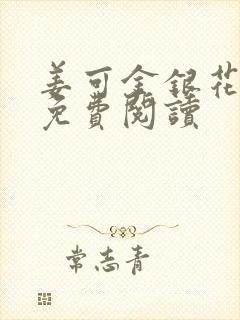 姜可金銀花
免費閱讀
常志青